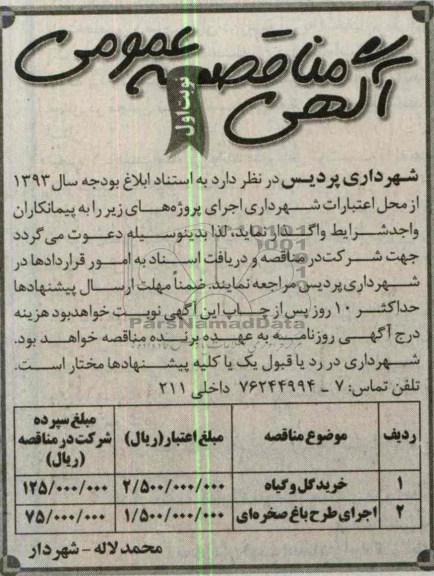 آگهی مناقصه عمومی
نوبت اول
شهرداری پردیس در نظر دارد به استناد ابلاغ بودجه سال ۱۳۹۳
از محل اعتبارات شهرداری اجرای پروژه‌های زیر را به پیمانکاران
واجدشرایط واگذار نماید، لذا بدینوسیله دعوت می گردد
جهت شرکت در مناقصه و دریافت اسناد به امور قراردادها در
شهرداری پردیس مراجعه نمایند. ضمناً مهلت ارسال پیشنهادها
حداکثر ۱۰ روز پس از چاپ این آگهی نوبت خواهدبود هزینه
درج آگهی روزنامه به عهده برنده مناقصه خواهد بود.
شهرداری در رد یا قبول یک یا کلیه پیشنهادها مختار است.
تلفن تماس: ۷ - ۷۶۲۴۴۹۹۴ داخلی ۲۱۱
ParsNamadData
ردیف موضوع مناقصه مبلغ اعتبار (ریال) مبلغ سپرده شرکت در مناقصه (ریال)
۱ خرید گل و گیاه ۲/۵۰۰/۰۰۰/۰۰۰ ۱۲۵/۰۰۰/۰۰۰
۲ اجرای طرح باغ صخره‌ای ۱/۵۰۰/۰۰۰/۰۰۰ ۷۵/۰۰۰/۰۰۰
محمد لاله - شهردار